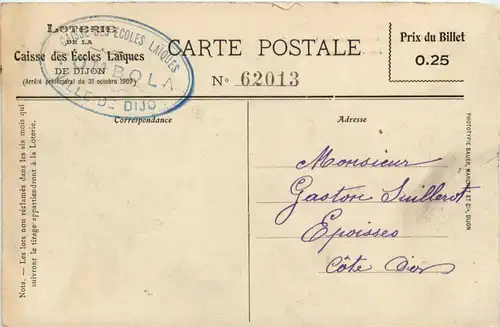 LOTERIE
DE LA
Caisse des Écoles Laïques
DE DIJON
(Arrêté préfectoral du 31 octobre 1907)
CAISSE DES ÉCOLES LAÏQUES
TOMBOLA
VILLE DE DIJON
CARTE POSTALE
N° 62013
Prix du Billet
0.25
Correspondance
Adresse
Monsieur
Gaston Suillerot
Epoisses
Côte d'or
Nota. — Les lots non réclamés dans les six mois qui
suivront le tirage appartiendront à la Loterie.
PHOTOTYPIE BAUER, MARCHET ET Cie, DIJON